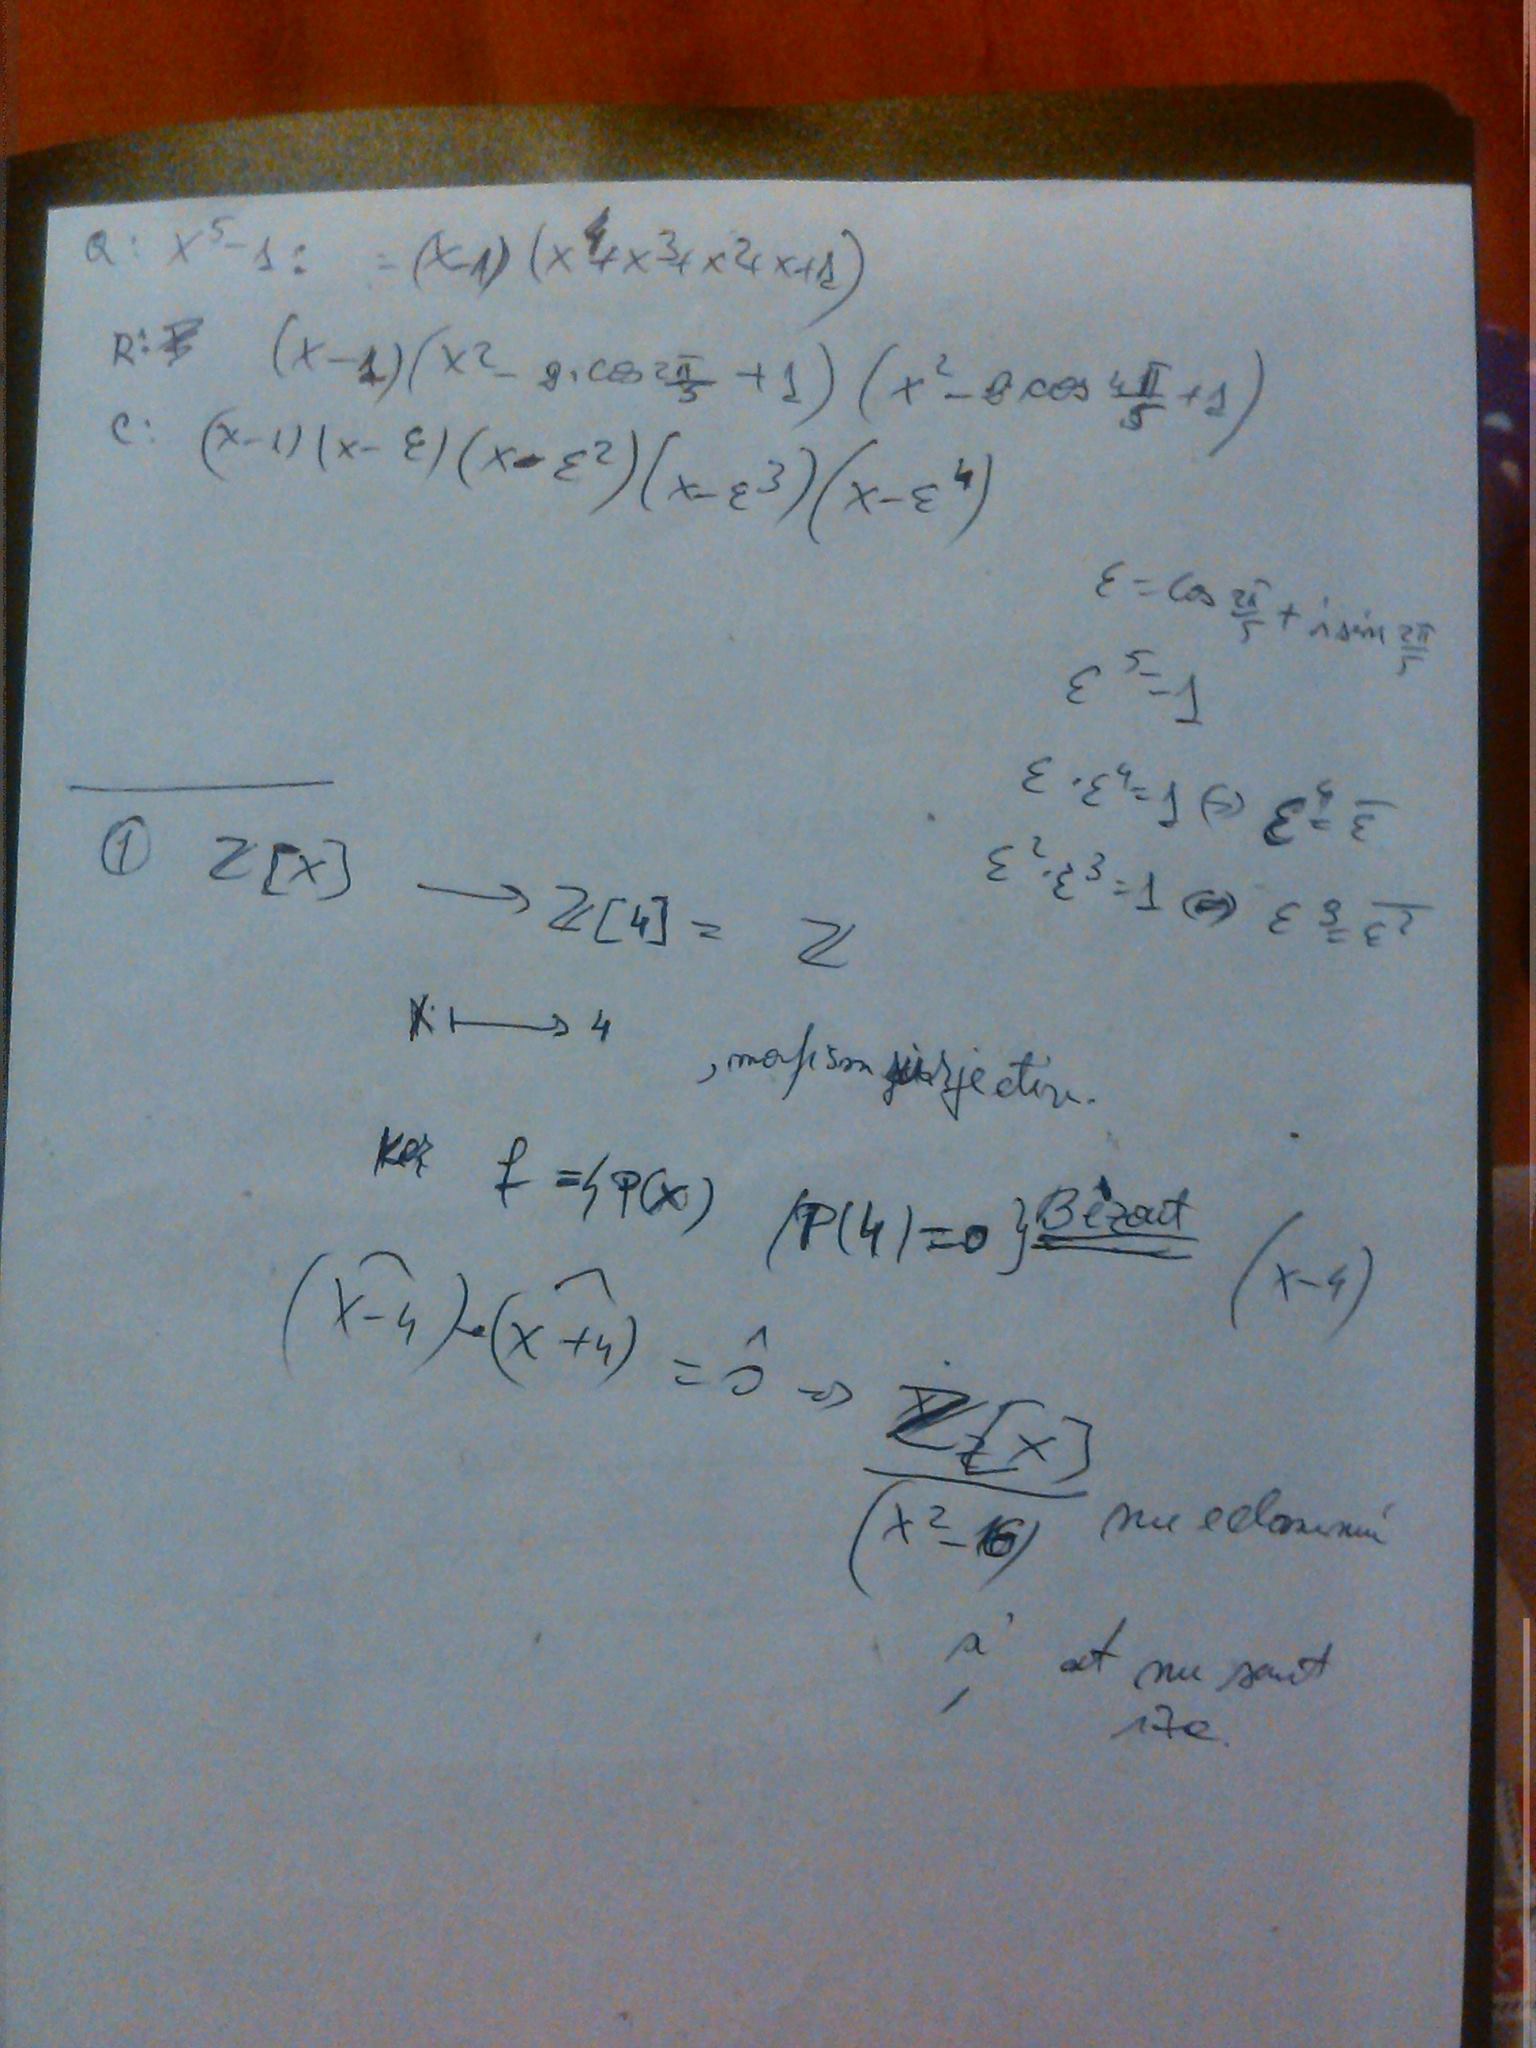 Q: x⁵-1: = (x-1) (x⁴+x³+x²+x+1)
R: (x-1)(x²- 2·cos 2π/5 +1) (x²-2 cos 4π/5 +1)
C: (x-1)(x-ε)(x-ε²)(x-ε³)(x-ε⁴)
ε = cos 2π/5 + i sin 2π/5
ε⁵=1
ε·ε⁴=1 (=) ε⁴=ε̅
ε²·ε³=1 (=) ε³=ε̅²
① Z[x] → Z[4] = Z
x ↦ 4
, morfism surjectiv.
Ker f = {P(x) /P(4)=0} Bézout (x-4)
(x-4)^·(x+4)^ = 0̂ ⇒ Z[x]/(x²-16) nu e domeniu
și at nu sunt
izo.